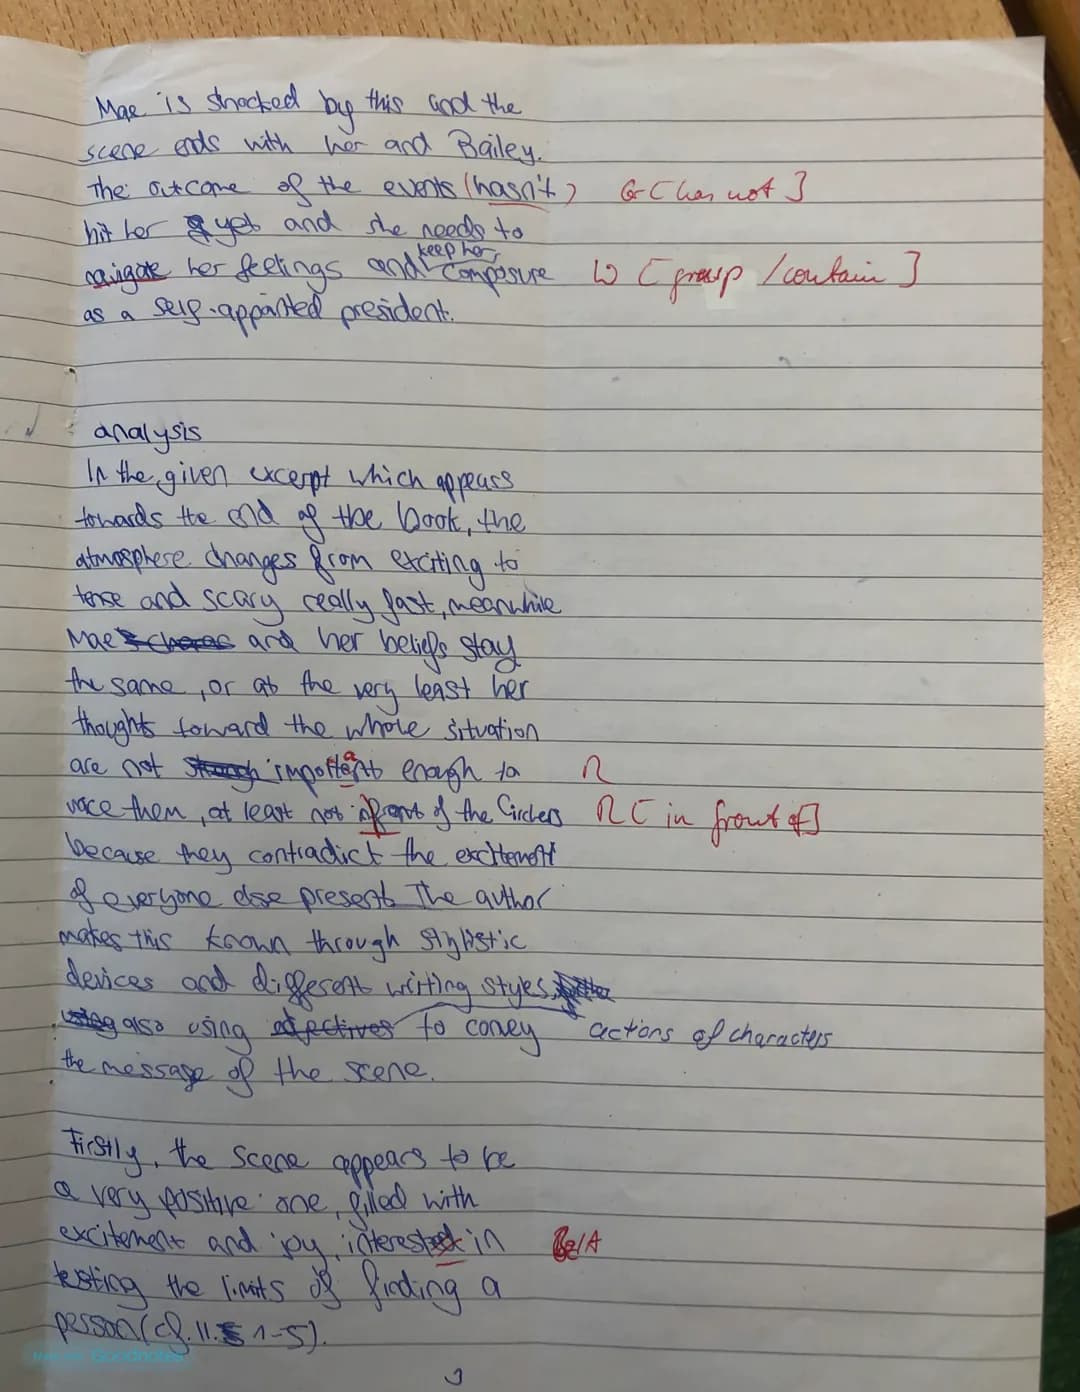 Mae is shocked by this and the
scene ends with her and Bailey.
The outcome of the events (hasn't) Gr [has not]
hit her yet and she needs to
navigate her feelings and keep her composure W [grasp / contain]
as a self-appointed president.
analysis
In the given excerpt which appears
towards the end of the book, the
atmosphere changes from exciting to
tense and scary really fast, meanwhile
Mae and her beliefs stay
the same, or at the very least her
thoughts toward the whole situation
are not important enough to R
voice them, at least not infront of the Circlers R [in front of]
because they contradict the excitement
of everyone else present. The author
makes this known through stylistic
devices and different writing styles,
also using actions of characters to convey
the message of the scene.
Firstly, the scene appears to be
a very positive one, filled with
excitement and joy, interested in A
testing the limits of finding a
person (cf. ll. 1-5).
Made with Goodnotes